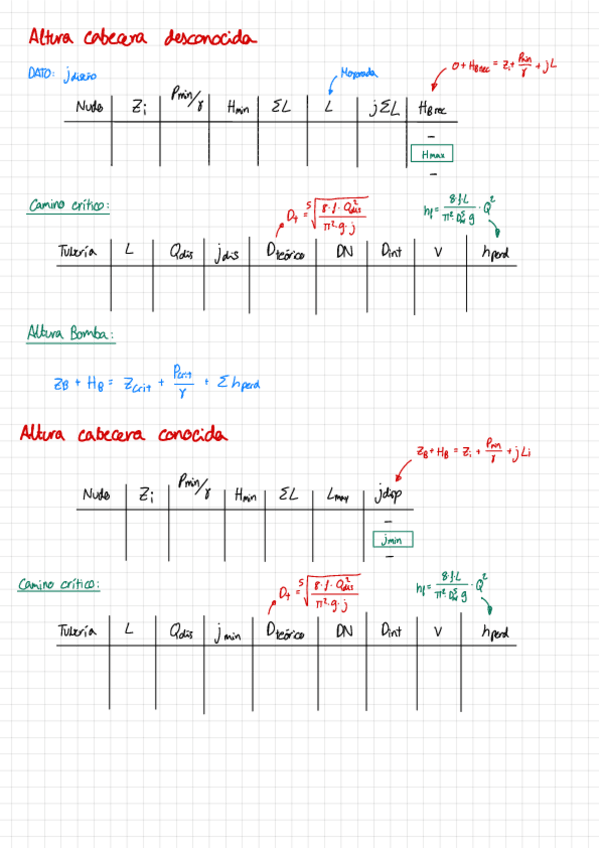 Altura cabecera desconocida
DATO: jdiseño
Mayorada
0 + HBrec = Zi + Pmin/γ + jL
Nudo Zi Pmin/γ Hmin ΣL L jΣL HBrec
-
Hmax
-
Camino crítico:
Dt = ⁵√(8·f·Qdis²/π²·g·j)
hf = 8·f·L/π²·Din⁵·g · Q²
Tubería L Qdis jdis Dteórico DN Dint V hperd
Altura Bomba:
ZB + HB = Zcrit + Pcrit/γ + Σhperd
Altura cabecera conocida
ZB + HB = Zi + Pmin/γ + jLi
Nudo Zi Pmin/γ Hmin ΣL Lmay jdisp
-
jmin
-
Camino crítico:
Dt = ⁵√(8·f·Qdis²/π²·g·j)
hf = 8·f·L/π²·Din⁵·g · Q²
Tubería L Qdis jmin Dteórico DN Dint V hperd